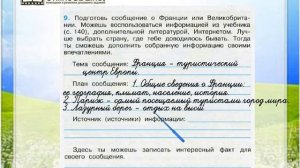 9. Подготовь сообщение о Франции или Великобрита-
нии. Можешь воспользоваться информацией из учебника
(с. 140), дополнительной литературой, Интернетом. Луч-
ше выбрать страну, где тебе доводилось бывать. Тогда
ты сможешь дополнить собранную информацию своими
впечатлениями.
Тема сообщения: Франция - туристический
центр Европы.
План сообщения: 1. Общие сведения о Франции:
ее география, климат, население, история.
2. Париж - самый посещаемый туристами город мира.
3. Лазурный берег - отдых на высш
Источник (источники) информации:
Здесь ты можешь записать интересный факт для
своего сообщения.